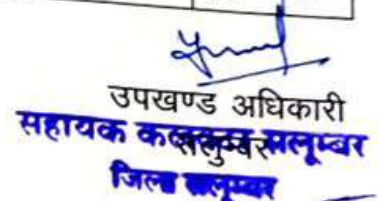 उपखण्ड अधिकारी
सलुम्बर
सहायक कलक्टर सलूम्बर
जिला सलूम्बर